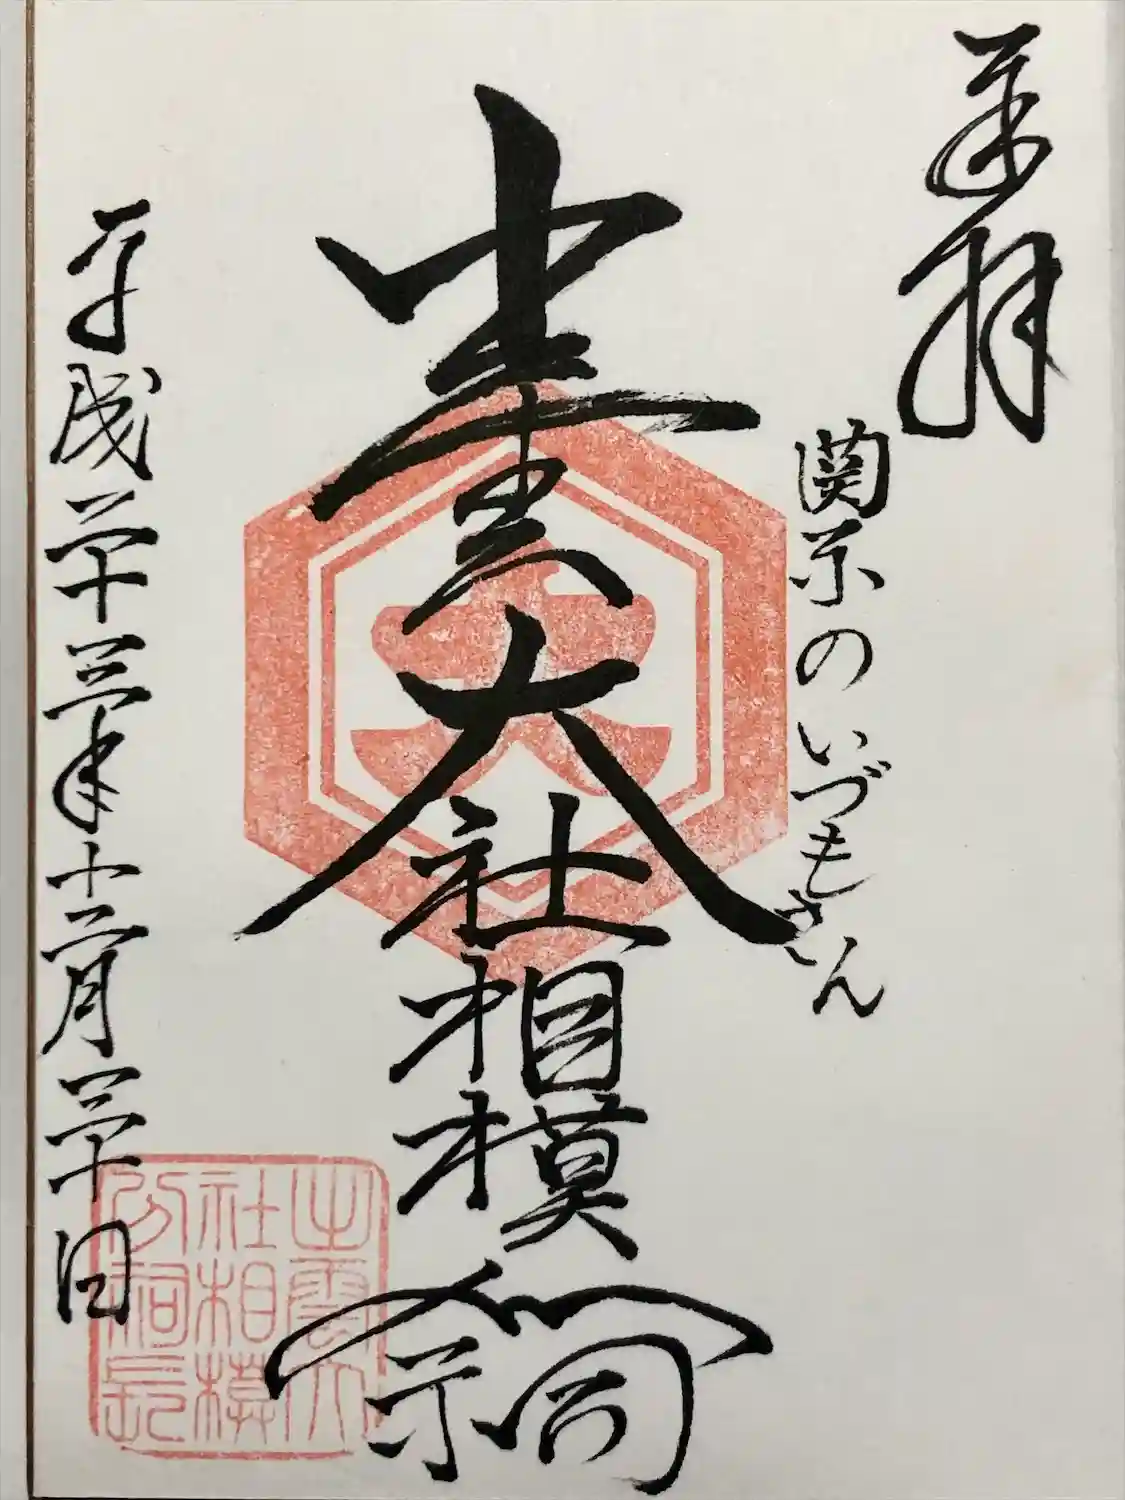 奉拝
関東のいづもさん
出雲大社相模分祠
平成二十三年十二月三十日
出雲大
社相模
分祠長